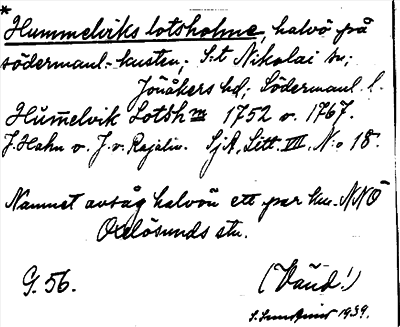 *
Hummelviks lotsholme, halvö på
södermanl. kusten; S:t Nikolai sn;
Jönåkers hd; Södermanl. l.
Hum̅elvik Lotsh<sup>m</sup> 1752 o. 1767.
J. Hahn o. J. v. Rajalin. SjA, Litt. VII, N:o 18.
Namnet avsåg halvön ett par km. NNÖ
Oxelösunds stn.
G. 56. (Vaud!)
1939.